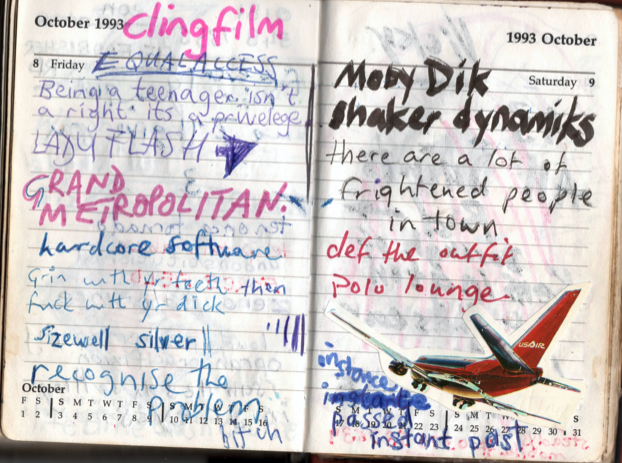 October 1993
clingfilm
8 Friday
EQUAL ACCESS
Being a teenager isn't
a right its a privelege
LADY FLASH
GRAND
METROPOLITAN.
hardcore software
Grin with yr teeth then
fuck with yr dick
sizewell silver
recognise the
problem
bitch
October
F S S M T W T F S S M T W T F S
1 2 3 4 5 6 7 8 9 10 11 12 13 14 15 16
1993 October
Saturday 9
Moby Dik
shaker dynamiks
there are a lot of
frightened people
in town
def the outfit
Polo lounge
USAIR
instance
passé
instant past
S M T W S
17 18 19 20 21 22 23 24 25 26 27 28 29 30 31